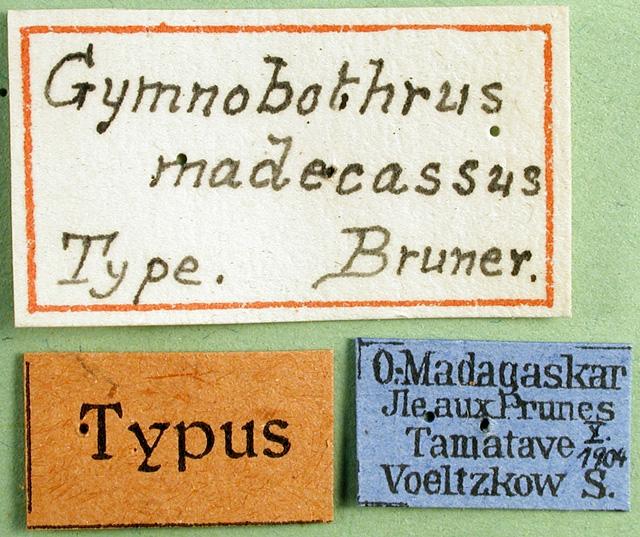 Gymnobothrus
madecassus
Type. Bruner.
Typus
O.-Madagaskar
Jle aux Prunes
Tamatave X.
1904
Voeltzkow S.